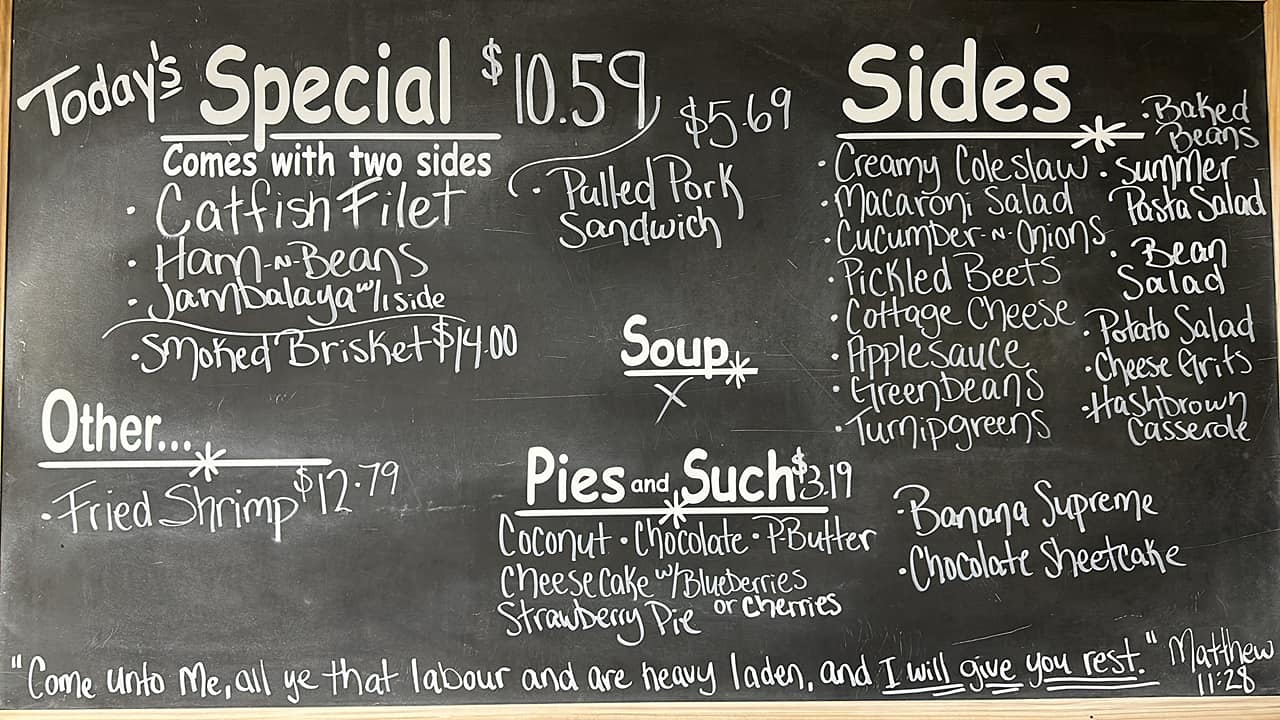 Today's Special $10.59
Comes with two sides
· Catfish Filet
· Ham-N-Beans
· Jambalaya w/1 side
· Smoked Brisket $14.00
$5.69
· Pulled Pork
Sandwich
Other...
· Fried Shrimp $12.79
Soup
X
Pies and Such $3.19
Coconut · Chocolate · P-Butter
Cheesecake w/Blueberries
or cherries
Strawberry Pie
· Banana Supreme
· Chocolate Sheetcake
Sides
· Creamy Coleslaw
· Macaroni Salad
· Cucumber-N-Onions
· Pickled Beets
· Cottage Cheese
· Applesauce
· Greenbeans
· Turnipgreens
· Baked
Beans
· Summer
Pasta Salad
· Bean
Salad
· Potato Salad
· Cheese Grits
· Hashbrown
Casserole
"Come unto Me, all ye that labour and are heavy laden, and I will give you rest." Matthew
11:28